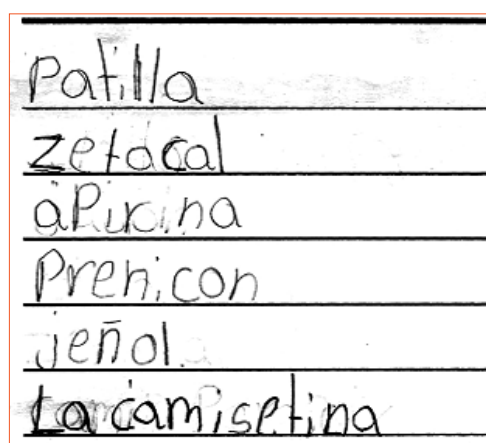 Patilla
zetacal
aPircina
Prenicon
jeñol
La camisetina